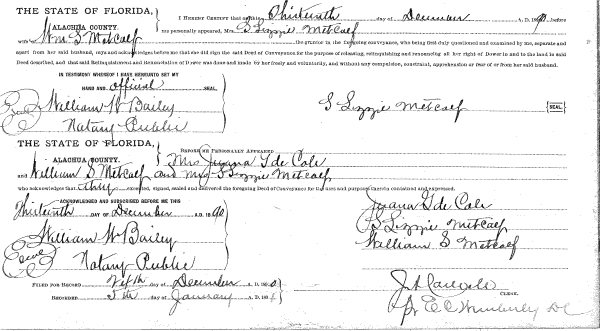 THE STATE OF FLORIDA,
ALACHUA COUNTY.
I HEREBY CERTIFY that on this Thirteenth day of December A. D. 1890, before
me personally appeared, Mrs. S Lizzie Metcalf
wife of Wm S Metcalf the grantor in the foregoing conveyance, who being first duly questioned and examined by me, separate and
apart from her said husband, says and acknowledges before me that she did sign the said Deed of Conveyance for the purpose of releasing, relinquishing and renouncing all her right of Dower in and to the land in said
Deed described, and that said Relinquishment and Renunciation of Dower was done and made by her freely and voluntarily, and without any compulsion, constraint, apprehension or fear of or from her said husband.
IN TESTIMONY WHEREOF I HAVE HEREUNTO SET MY
HAND AND official SEAL.
William W Bailey
Notary Public
S Lizzie Metcalf SEAL
THE STATE OF FLORIDA,
ALACHUA COUNTY.
BEFORE ME PERSONALLY APPEARED
Mrs Juana G de Cale
and William S Metcalf and Mrs S Lizzie Metcalf
who acknowledges that they executed, signed, sealed and delivered the foregoing Deed of Conveyance for the uses and purposes therein contained and expressed.
ACKNOWLEDGED AND SUBSCRIBED BEFORE ME THIS
Thirteenth DAY OF December A. D. 1890
William W Bailey
Notary Public
Juana G de Cale
S Lizzie Metcalf
William S Metcalf
FILED FOR RECORD day of December A. D. 1890
RECORDED 5th day of January A. D. 189
CLERK.